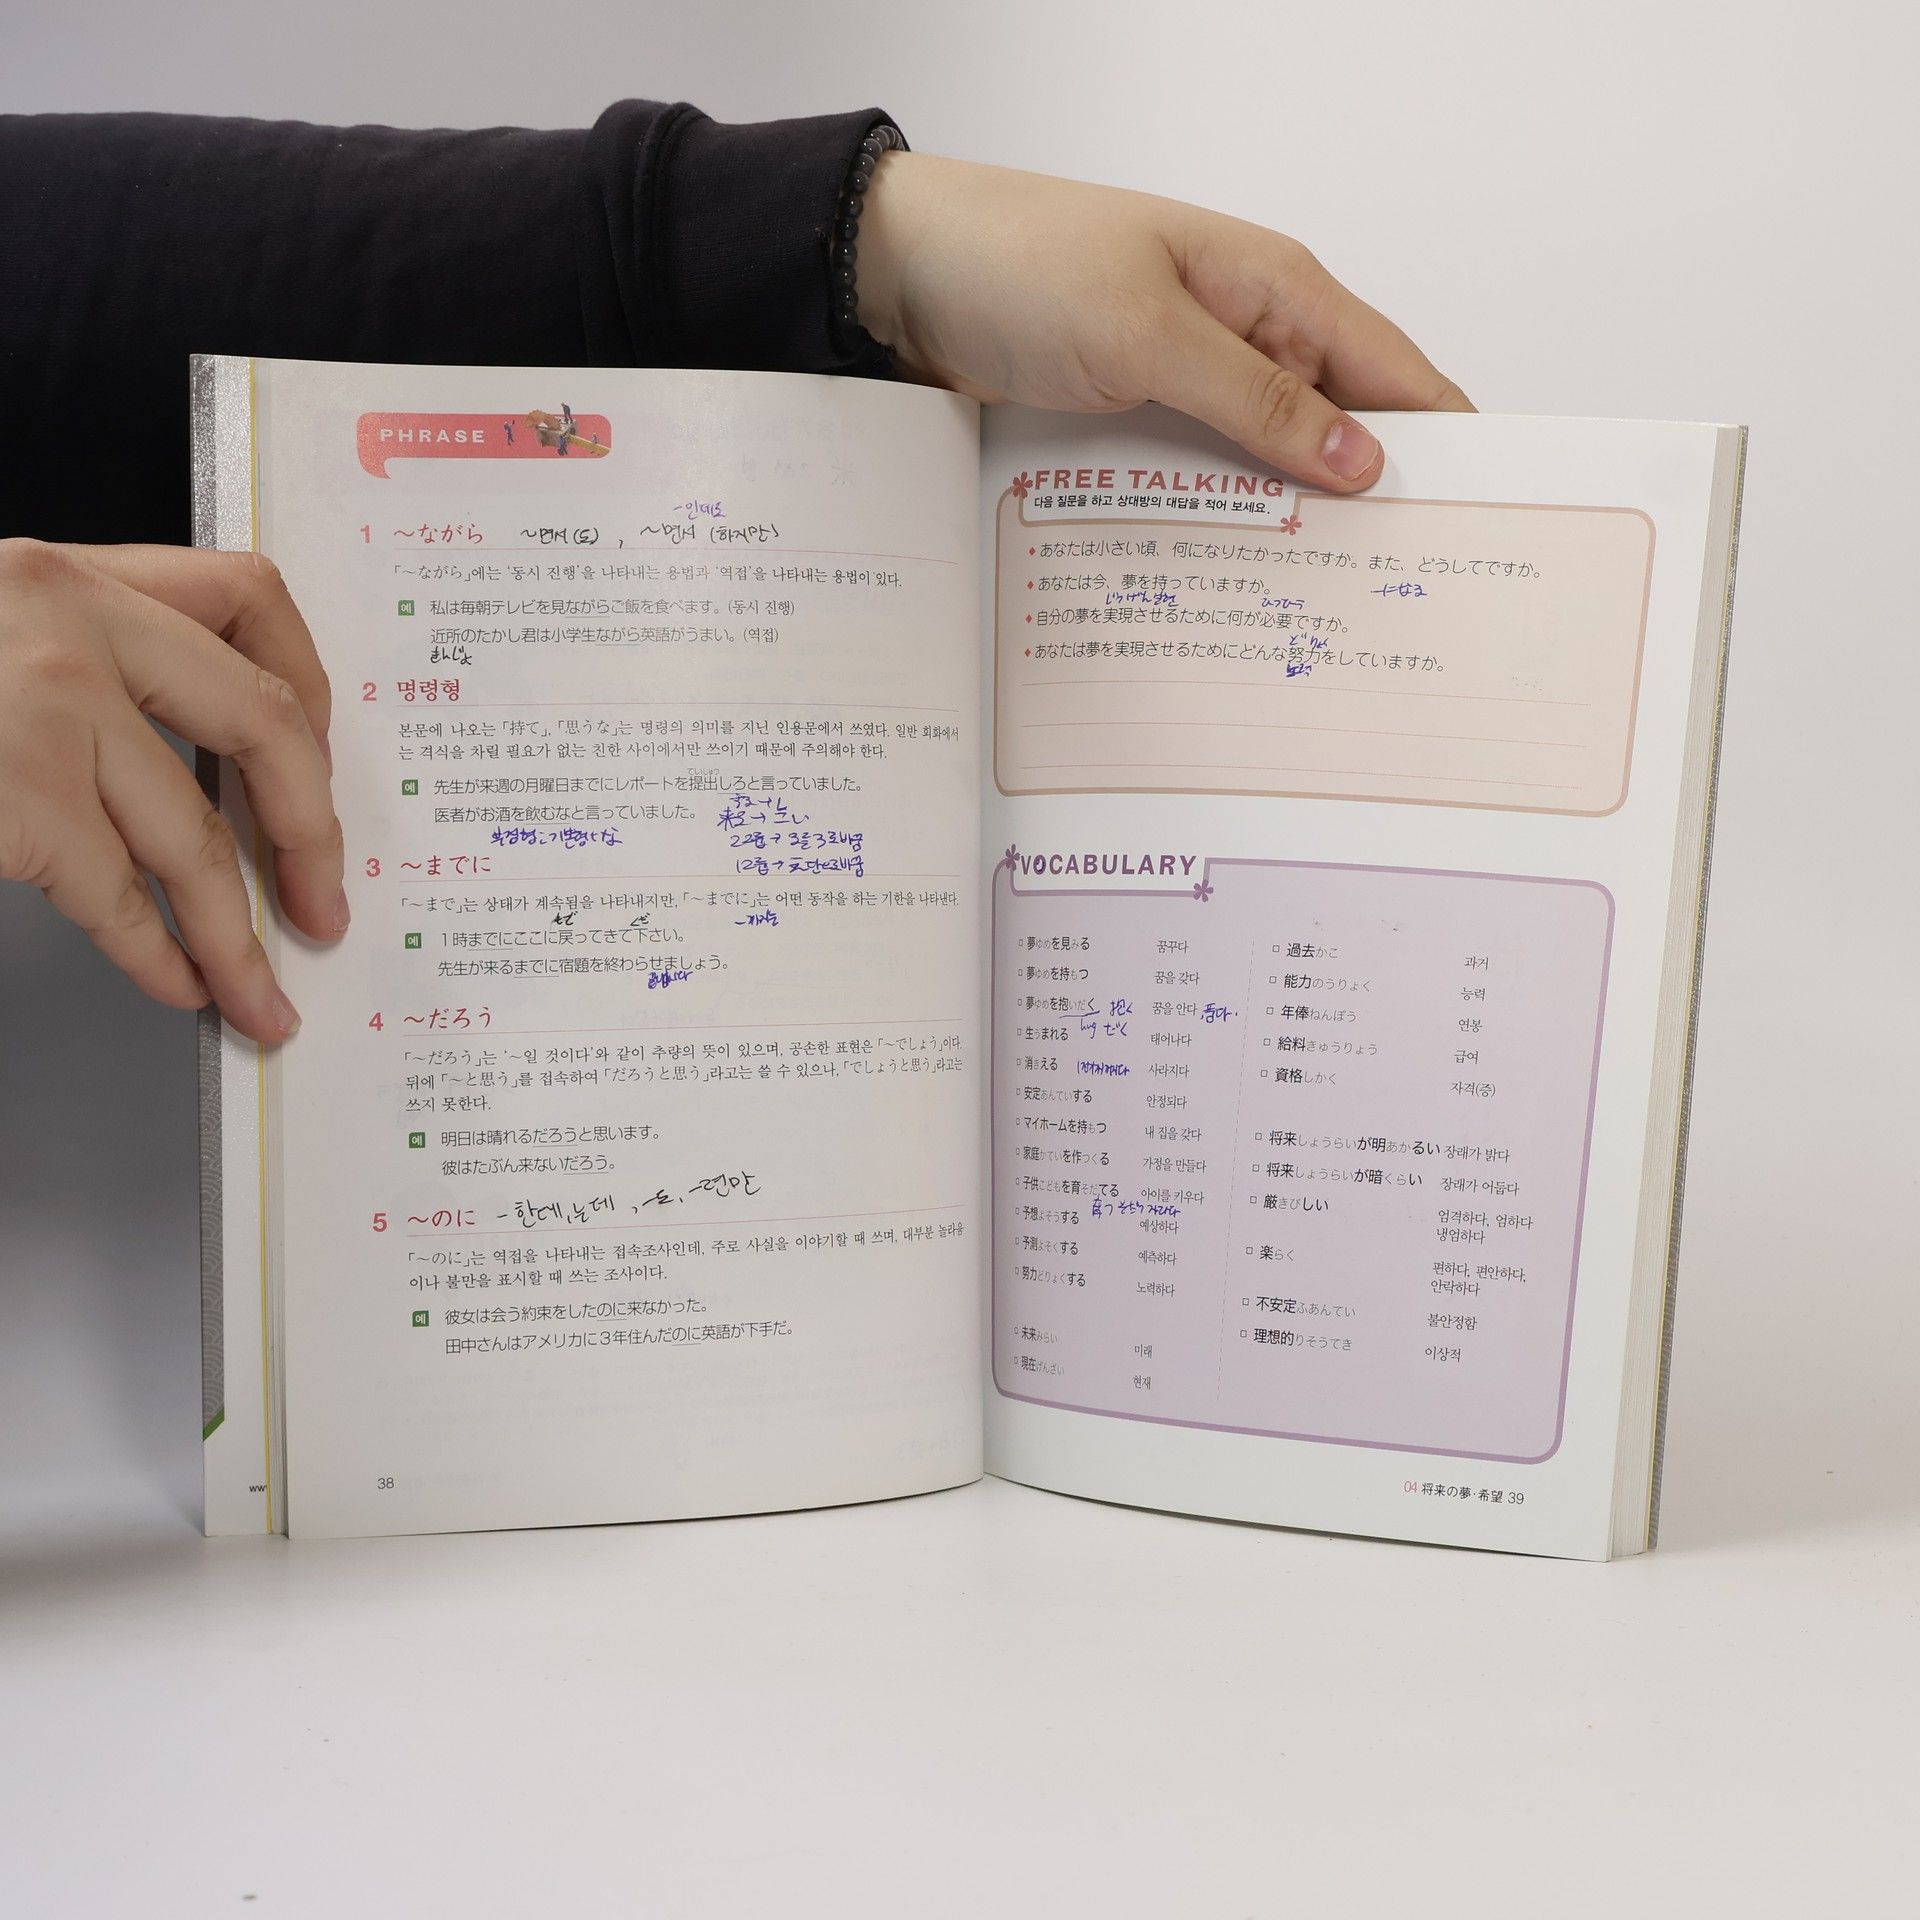 PHRASE
1 ～ながら ～면서(도), ～면서 (하지만)
-인데도
「～ながら」에는 '동시 진행'을 나타내는 용법과 '역접'을 나타내는 용법이 있다.
예 私は毎朝テレビを見ながらご飯を食べます。(동시 진행)
近所のたかし君は小学生ながら英語がうまい。(역접)
きんじょ
2 명령형
본문에 나오는 「持て」, 「思うな」는 명령의 의미를 지닌 인용문에서 쓰였다. 일반 회화에서
는 격식을 차릴 필요가 없는 친한 사이에서만 쓰이기 때문에 주의해야 한다.
ていしゅつ
예 先生が来週の月曜日までにレポートを提出しろと言っていました。
医者がお酒を飲むなと言っていました。
3 ～までに
「～まで」는 상태가 계속됨을 나타내지만, 「～までに」는 어떤 동작을 하는 기한을 나타낸다.
-까지는
もど くだ
예 １時までにここに戻ってきて下さい。
先生が来るまでに宿題を終わらせましょう。
4 ～だろう
「～だろう」는 '～일 것이다'와 같이 추량의 뜻이 있으며, 공손한 표현은 「～でしょう」이다.
뒤에 「～と思う」를 접속하여 「だろうと思う」라고는 쓸 수 있으나, 「でしょうと思う」라고는
쓰지 못한다.
예 明日は晴れるだろうと思います。
彼はたぶん来ないだろう。
5 ～のに -한데, 는데, -도, -련만
「～のに」는 역접을 나타내는 접속조사인데, 주로 사실을 이야기할 때 쓰며, 대부분 놀라움
이나 불만을 표시할 때 쓰는 조사이다.
예 彼女は会う約束をしたのに来なかった。
田中さんはアメリカに３年住んだのに英語が下手だ。
38
FREE TALKING
다음 질문을 하고 상대방의 대답을 적어 보세요.
♦ あなたは小さい頃、何になりたかったですか。また、どうしてですか。
♦ あなたは今、夢を持っていますか。
-になる
♦ 自分の夢を実現させるために何が必要ですか。
♦ あなたは夢を実現させるためにどんな努力をしていますか。
노력
VOCABULARY
夢ゆめを見みる 꿈꾸다
夢ゆめを持もつ 꿈을 갖다
夢ゆめを抱いだく 抱く 꿈을 안다, 품다.
hug だく
生うまれる 태어나다
消きえる 사라지다
安定あんていする 안정되다
マイホームを持もつ 내 집을 갖다
家庭かていを作つくる 가정을 만들다
子供こどもを育そだてる 아이를 키우다
育つ そだつ 자라다
予想よそうする 예상하다
予測よそくする 예측하다
努力どりょくする 노력하다
未来みらい 미래
現在げんざい 현재
過去かこ 과거
能力のうりょく 능력
年俸ねんぽう 연봉
給料きゅうりょう 급여
資格しかく 자격(증)
将来しょうらいが明あかるい 장래가 밝다
将来しょうらいが暗くらい 장래가 어둡다
厳きびしい 엄격하다, 엄하다
냉엄하다
楽らく 편하다, 편안하다,
안락하다
不安定ふあんてい 불안정함
理想的りそうてき 이상적
04 将来の夢・希望 39